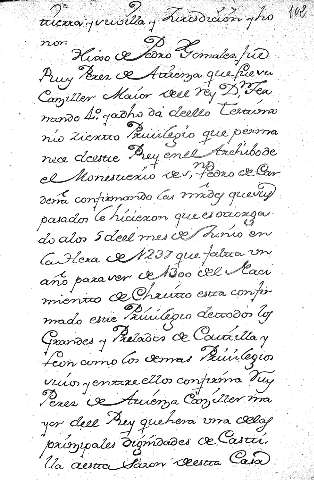 tierra y villa y Jurisdiccion y ho 142
nor.
Hijo de Pedro Gomalez fue
Ruy Perez de Atienza que fue vn
Canziller Maior dell Rey Dⁿ Fer
nando 4º y dho dà dello Testimo
nio zierto Privilegio que perma
nece deeste Rey en el Archibo de
el Monesterio de Sⁿ Pedro de Car
deña confirmando las mrdes que sus
pasados le hicieron que es otorga
do a los 5 dell mes de Junio en
la Hera de 1237 que faltra un
año para ser de 1300 del Naci
miento de Christo esta confir
mado este Privilegio de todos los
Grandes y Prelados de Castilla y
Leon como los demas Privilegios
suios y entre ellos confirma Ruy
Perez de Atienza Canziller ma
yor dell Rey que hera una de las
prinzipales dignidades de Casti
lla a esta sazon de esta Casa